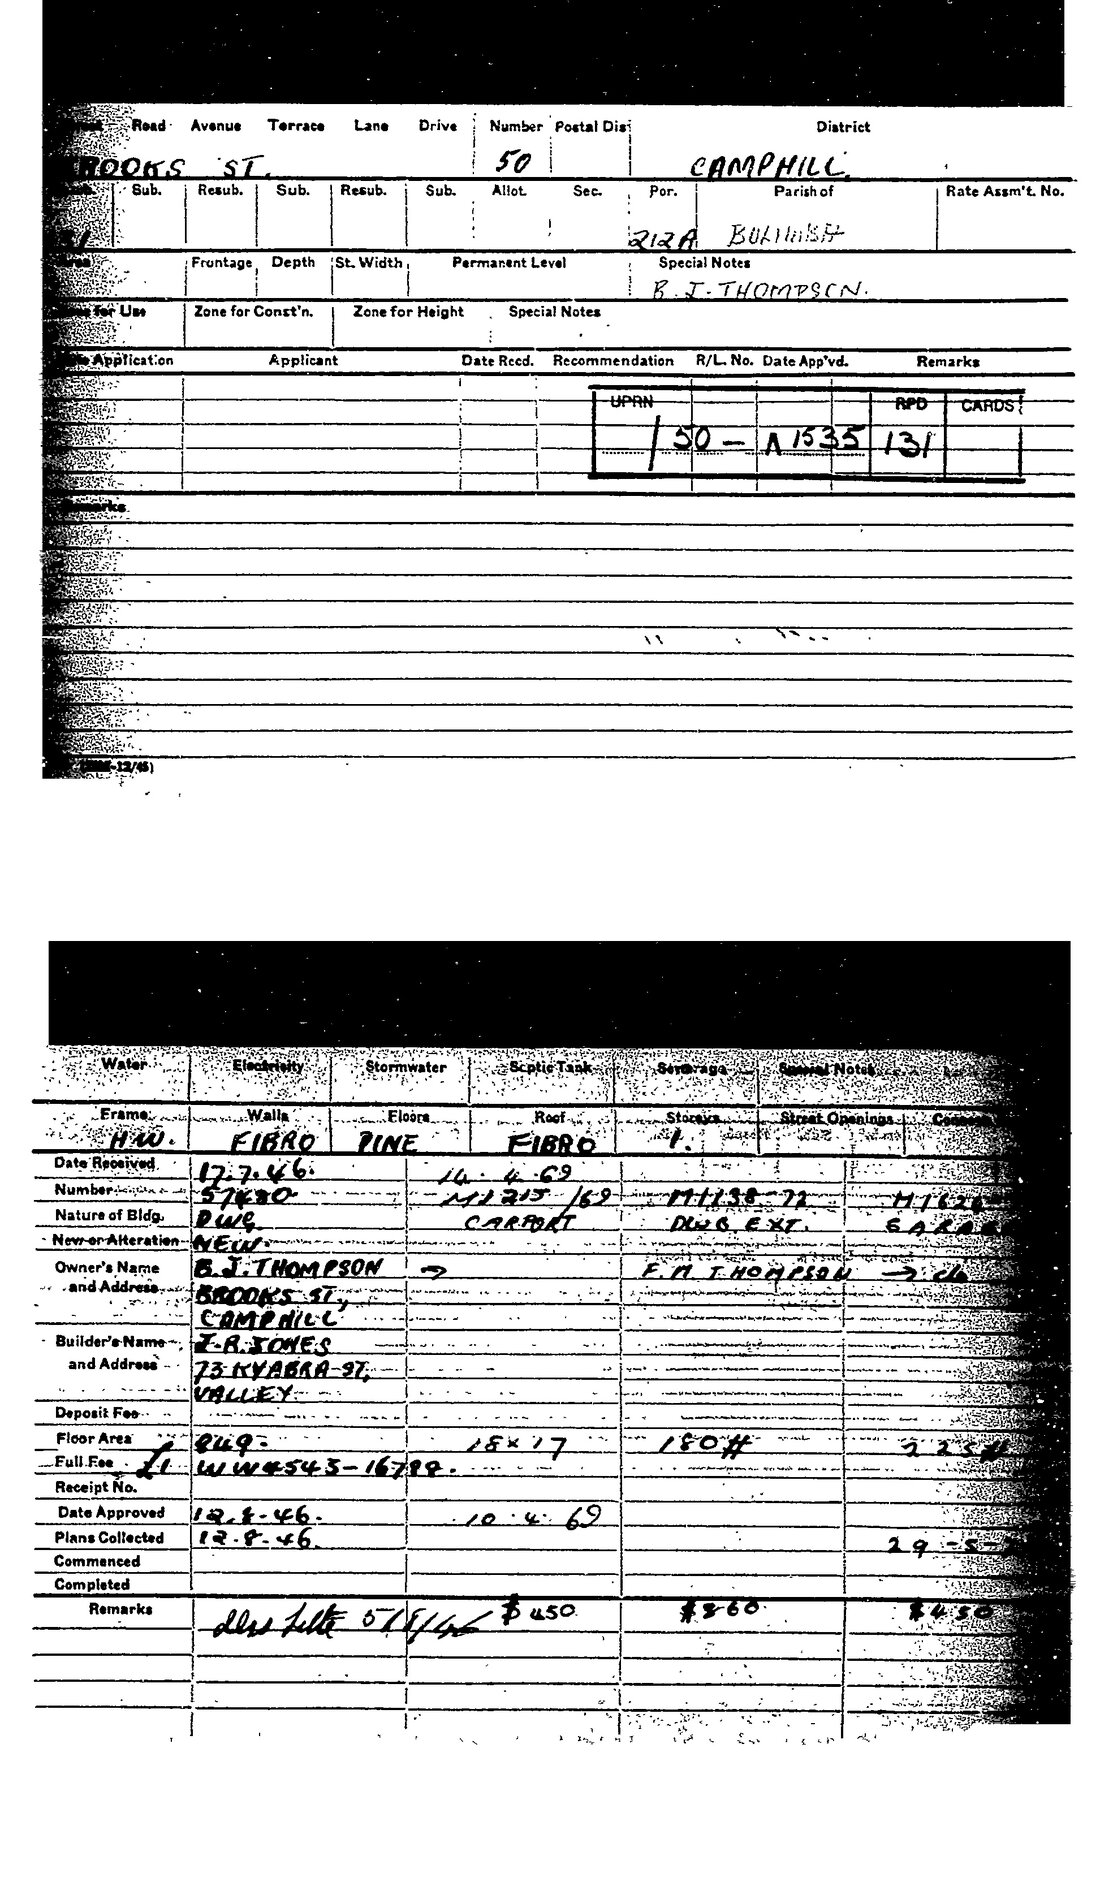 Road Avenue Terrace Lane Drive Number Postal Dis District
ROOKS ST. 50 CAMPHILL.
Sub. Resub. Sub. Resub. Sub. Allot. Sec. Por. Parish of Rate Assm't. No.
212A BULIMBA
Frontage Depth St. Width Permanent Level Special Notes
B. J. THOMPSON.
for Use Zone for Const'n. Zone for Height Special Notes
Application Applicant Date Recd. Recommendation R/L. No. Date App'vd. Remarks
UPRN RPD CARDS
/ 50 - A1535 131
Remarks
12/45)
Water Electricity Stormwater Septic Tank Sewerage Special Notes
Frame Walls Floors Roof Storeys Street Openings
H.W. FIBRO PINE FIBRO 1.
Date Received 17.7.46. 14.4.69
Number 57480 M1215/69 M1138-72
Nature of Bldg. DWG CARPORT DWG EXT.
New or Alteration NEW.
Owner's Name B.J. THOMPSON → F.M THOMPSON →
and Address BROOKS ST.,
CAMPHILL
Builder's Name I.R. JONES
and Address 73 KYABRA ST,
VALLEY.
Deposit Fee
Floor Area 849. 18x17 180#
Full Fee £1 WW4543-16788.
Receipt No.
Date Approved 12.8.46. 10.4.69
Plans Collected 12.8.46. 29-5-
Commenced
Completed
Remarks $450. $860. $450